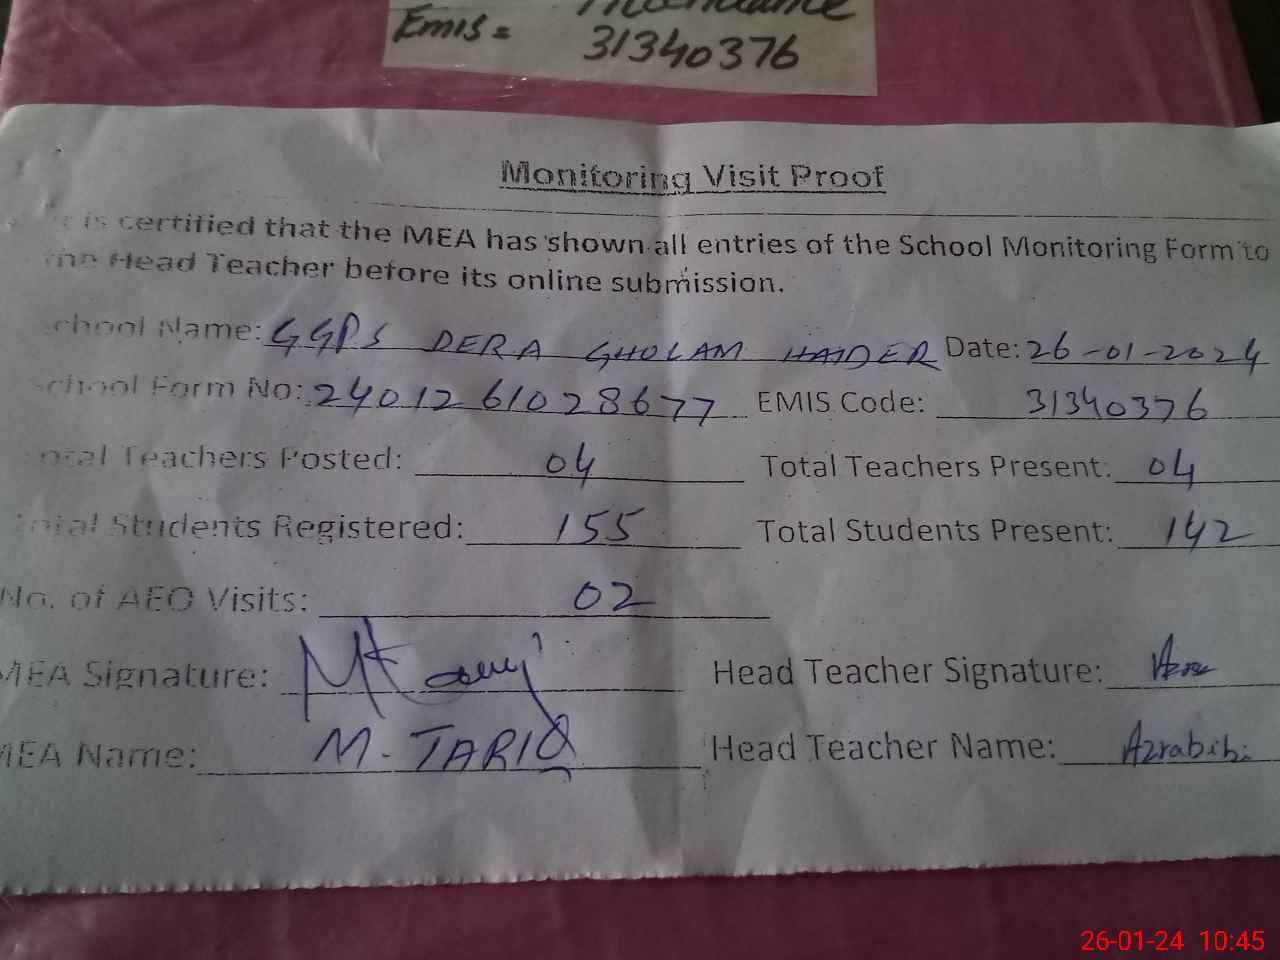 Emis = 31340376
Monitoring Visit Proof
is certified that the MEA has shown all entries of the School Monitoring Form to
the Head Teacher before its online submission.
School Name: GGPS DERA GHOLAM HAIDER Date: 26-01-2024
School Form No: 2401261028677 EMIS Code: 31340376
Total Teachers Posted: 04 Total Teachers Present: 04
Total Students Registered: 155 Total Students Present: 142
No. of AEO Visits: 02
MEA Signature: Head Teacher Signature:
MEA Name: M. TARIQ Head Teacher Name: Azrabibi
26-01-24 10:45